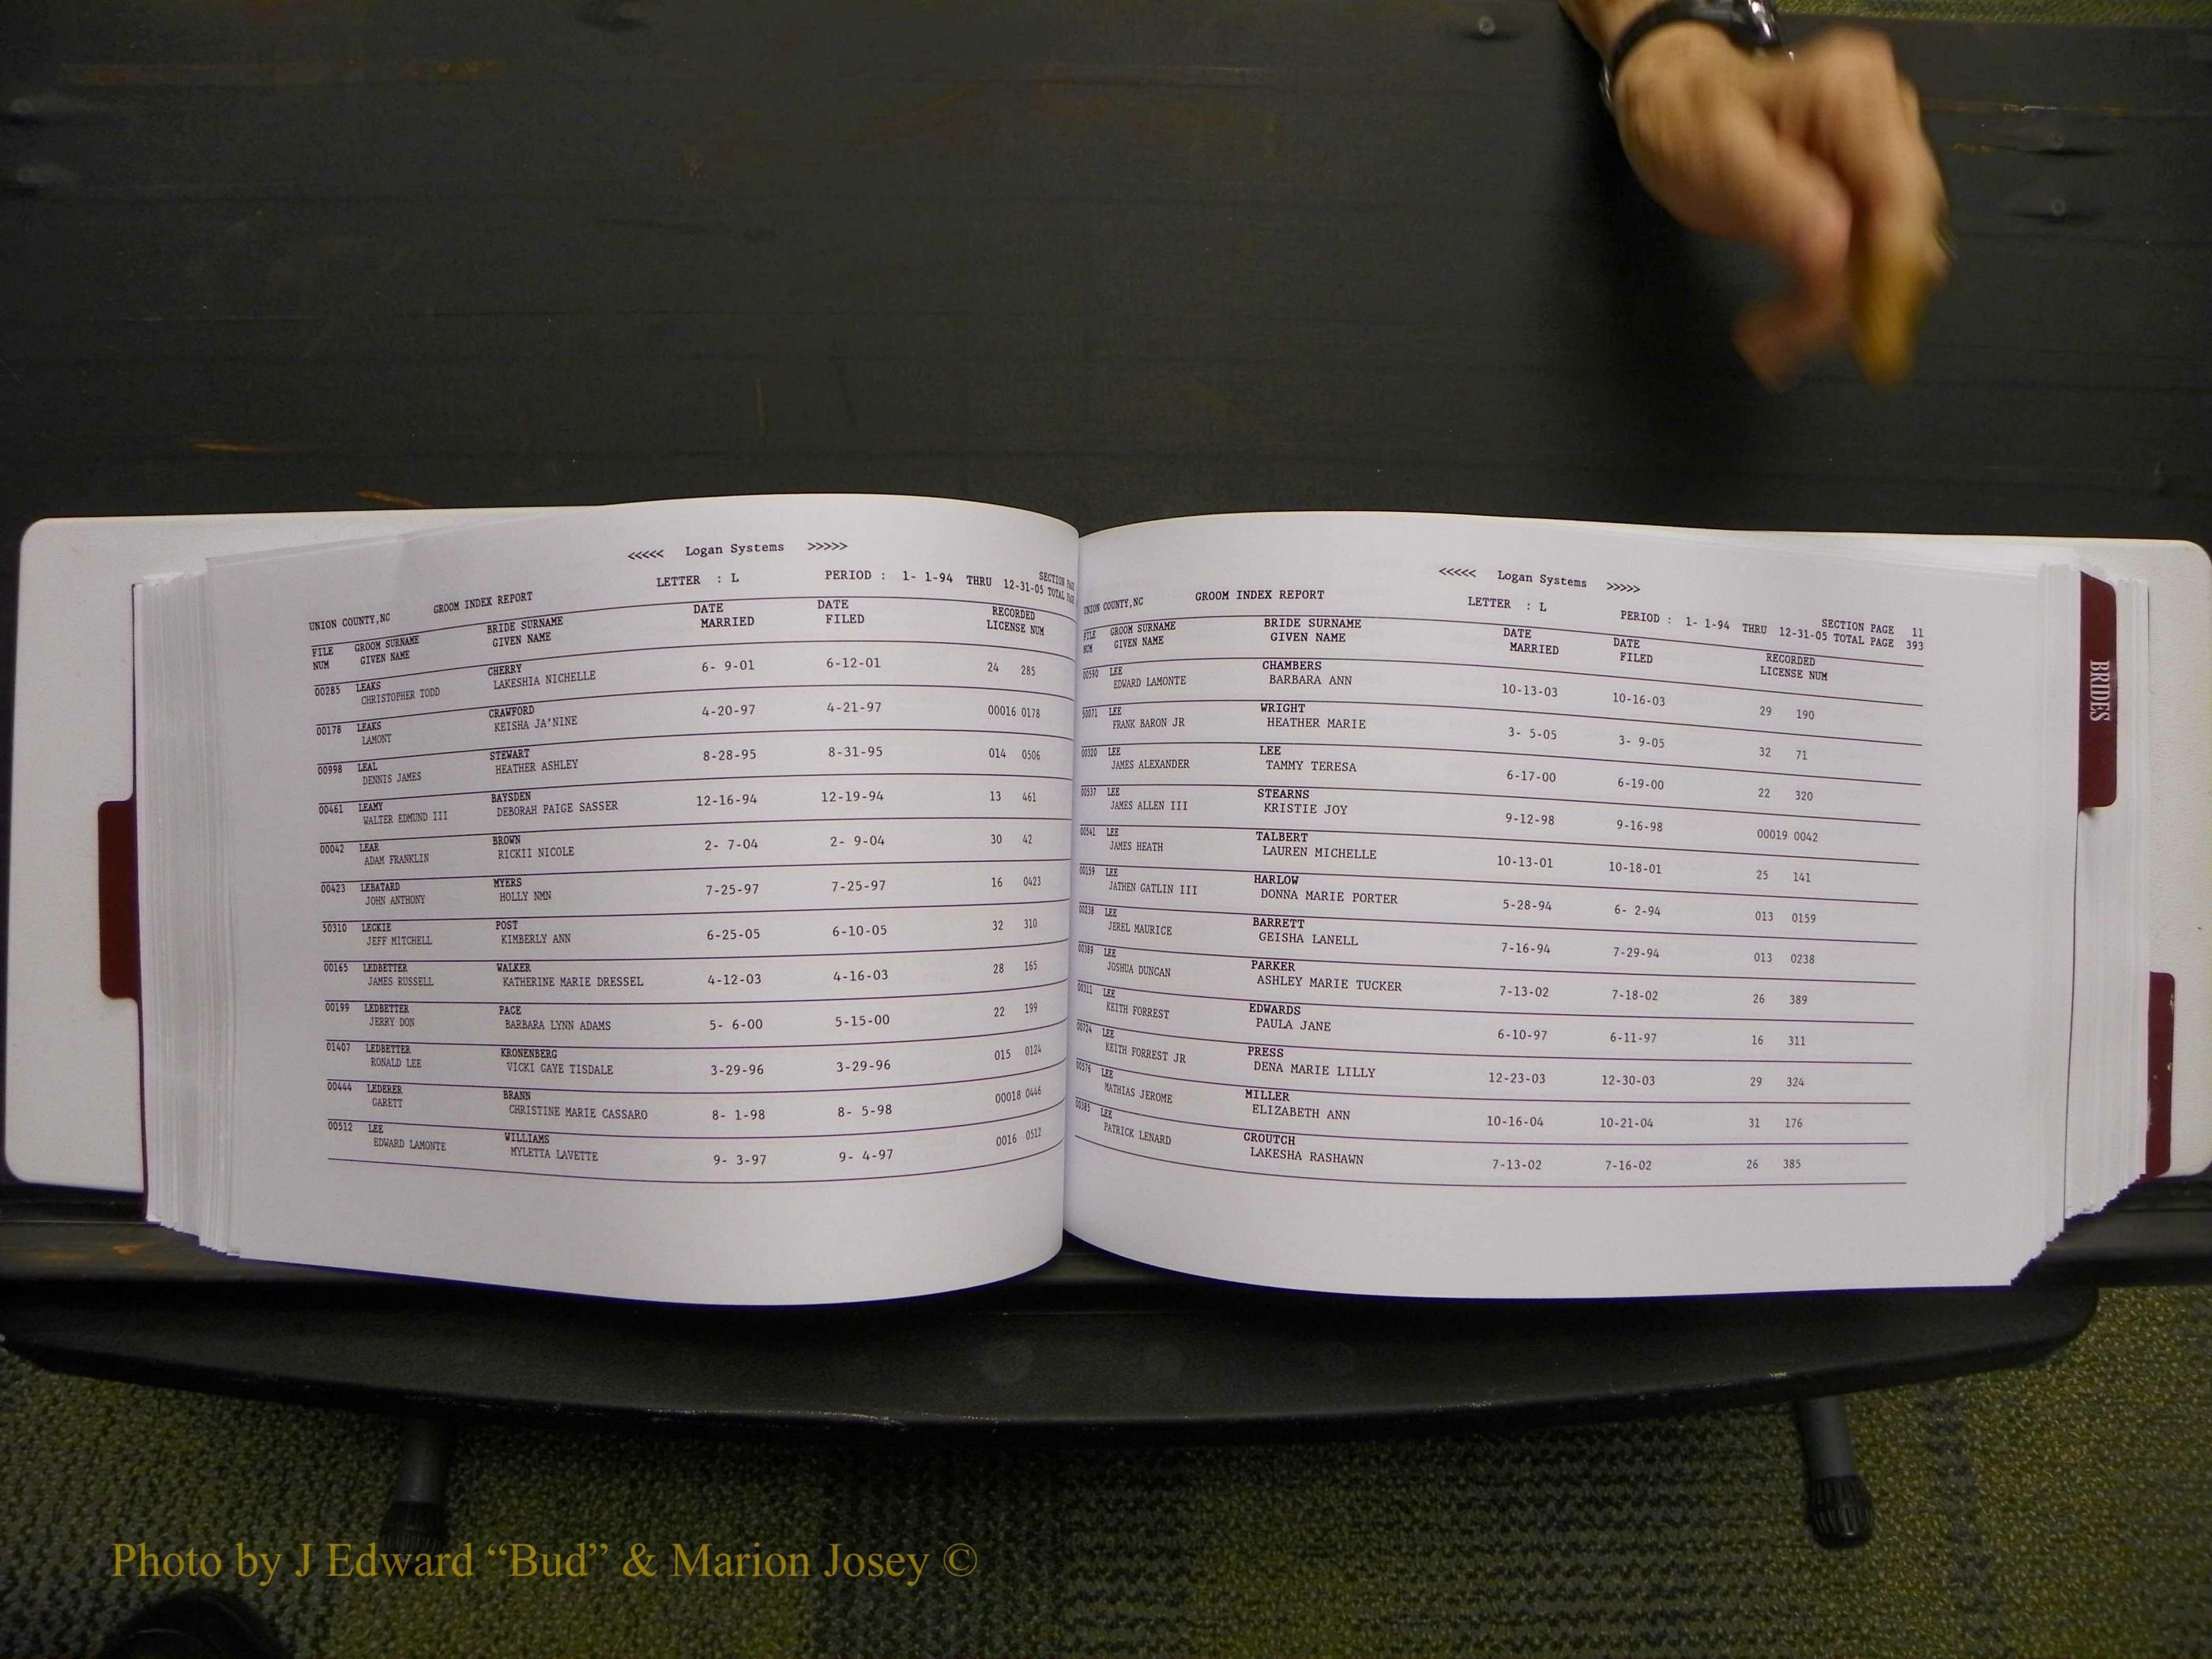 <<<<< Logan Systems >>>>>
UNION COUNTY,NC GROOM INDEX REPORT LETTER : L PERIOD : 1- 1-94 THRU 12-31-05 SECTION TOTAL
FILE GROOM SURNAME BRIDE SURNAME DATE DATE RECORDED
NUM GIVEN NAME GIVEN NAME MARRIED FILED LICENSE NUM
00285 LEAKS CHERRY 6- 9-01 6-12-01 24 285
CHRISTOPHER TODD LAKESHIA NICHELLE
00178 LEAKS CRAWFORD 4-20-97 4-21-97 00016 0178
LAMONT KEISHA JA'NINE
00998 LEAL STEWART 8-28-95 8-31-95 014 0506
DENNIS JAMES HEATHER ASHLEY
00461 LEAMY BAYSDEN 12-16-94 12-19-94 13 461
WALTER EDMUND III DEBORAH PAIGE SASSER
00042 LEAR BROWN 2- 7-04 2- 9-04 30 42
ADAM FRANKLIN RICKII NICOLE
00423 LEBATARD MYERS 7-25-97 7-25-97 16 0423
JOHN ANTHONY HOLLY NMN
50310 LECKIE POST 6-25-05 6-10-05 32 310
JEFF MITCHELL KIMBERLY ANN
00165 LEDBETTER WALKER 4-12-03 4-16-03 28 165
JAMES RUSSELL KATHERINE MARIE DRESSEL
00199 LEDBETTER PACE 5- 6-00 5-15-00 22 199
JERRY DON BARBARA LYNN ADAMS
01407 LEDBETTER KRONENBERG 3-29-96 3-29-96 015 0124
RONALD LEE VICKI GAYE TISDALE
00444 LEDERER BRANN 8- 1-98 8- 5-98 00018 0446
GARETT CHRISTINE MARIE CASSARO
00512 LEE WILLIAMS 9- 3-97 9- 4-97 0016 0512
EDWARD LAMONTE MYLETTA LAVETTE
<<<<< Logan Systems >>>>>
UNION COUNTY,NC GROOM INDEX REPORT LETTER : L PERIOD : 1- 1-94 THRU 12-31-05 SECTION PAGE 11
TOTAL PAGE 393
FILE GROOM SURNAME BRIDE SURNAME DATE DATE RECORDED
NUM GIVEN NAME GIVEN NAME MARRIED FILED LICENSE NUM
00590 LEE CHAMBERS 10-13-03 10-16-03 29 190
EDWARD LAMONTE BARBARA ANN
50071 LEE WRIGHT 3- 5-05 3- 9-05 32 71
FRANK BARON JR HEATHER MARIE
00320 LEE LEE 6-17-00 6-19-00 22 320
JAMES ALEXANDER TAMMY TERESA
00537 LEE STEARNS 9-12-98 9-16-98 00019 0042
JAMES ALLEN III KRISTIE JOY
00541 LEE TALBERT 10-13-01 10-18-01 25 141
JAMES HEATH LAUREN MICHELLE
00159 LEE HARLOW 5-28-94 6- 2-94 013 0159
JATHEN GATLIN III DONNA MARIE PORTER
00238 LEE BARRETT 7-16-94 7-29-94 013 0238
JEREL MAURICE GEISHA LANELL
00389 LEE PARKER 7-13-02 7-18-02 26 389
JOSHUA DUNCAN ASHLEY MARIE TUCKER
00311 LEE EDWARDS 6-10-97 6-11-97 16 311
KEITH FORREST PAULA JANE
00724 LEE PRESS 12-23-03 12-30-03 29 324
KEITH FORREST JR DENA MARIE LILLY
00576 LEE MILLER 10-16-04 10-21-04 31 176
MATHIAS JEROME ELIZABETH ANN
00385 LEE CROUTCH 7-13-02 7-16-02 26 385
PATRICK LENARD LAKESHA RASHAWN
BRIDES
Photo by J Edward “Bud” & Marion Josey ©